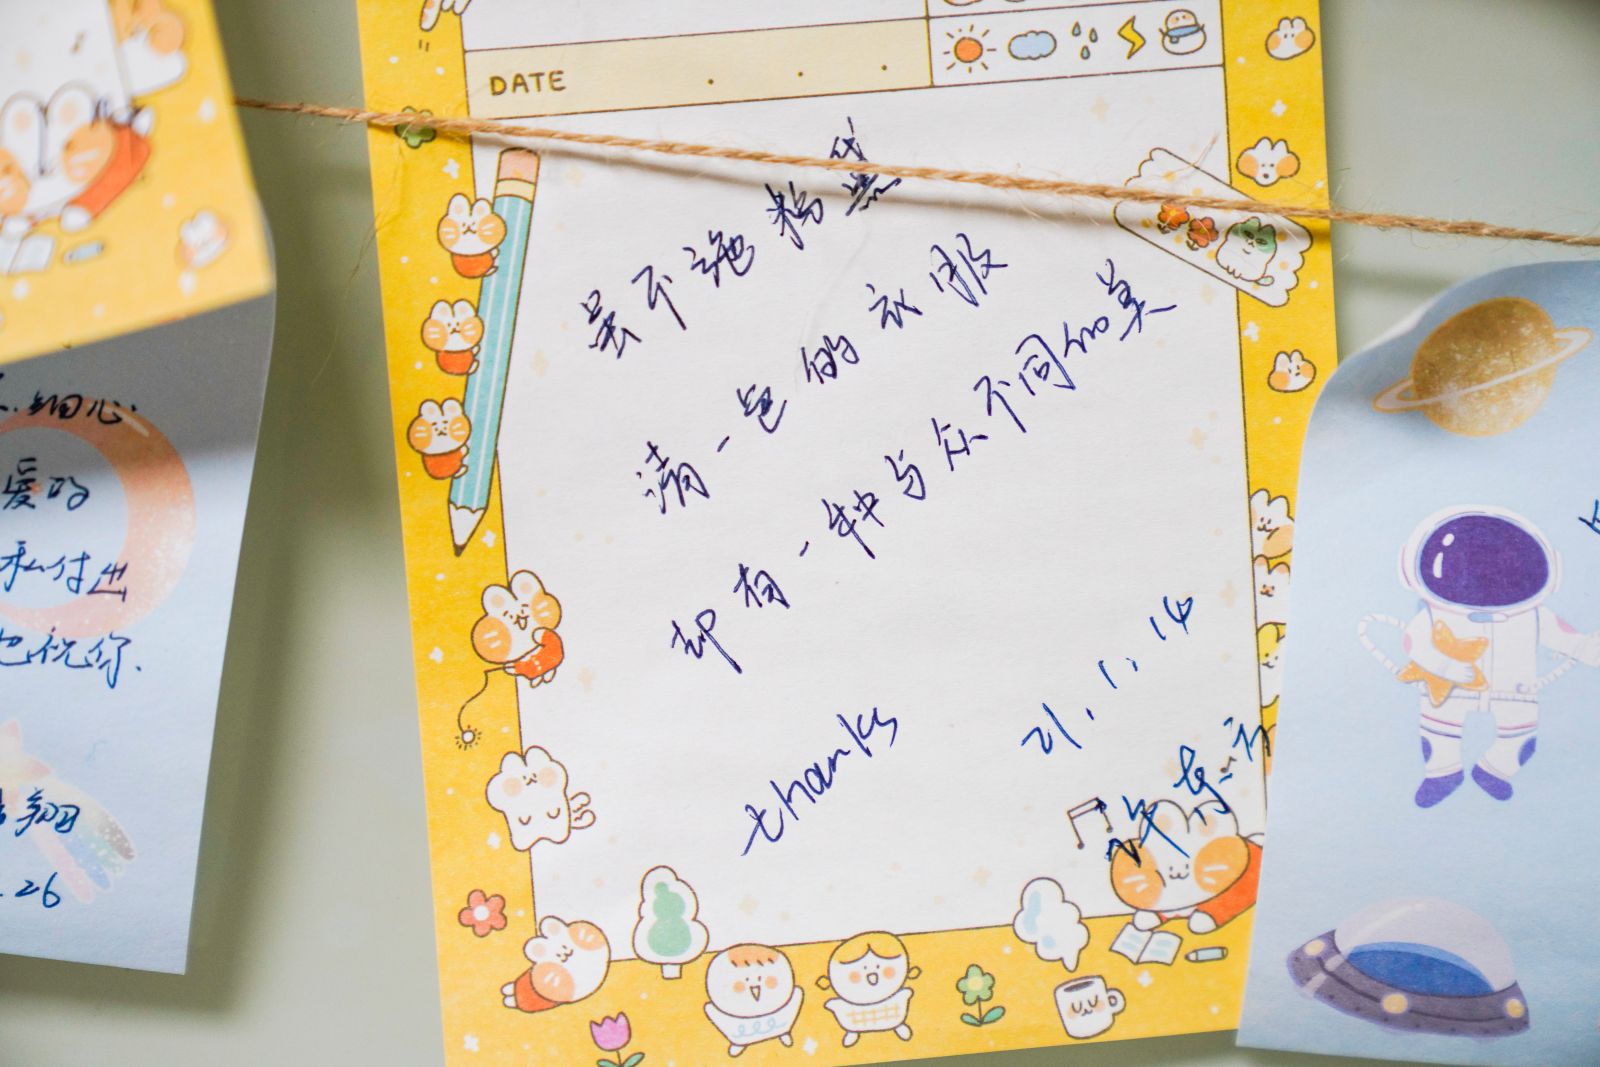 DATE
虽不施粉黛
清一色的衣服
却有一种与众不同的美
thanks
21.1.14
细心.
爱的
私付出
也祝你.
翔
.26